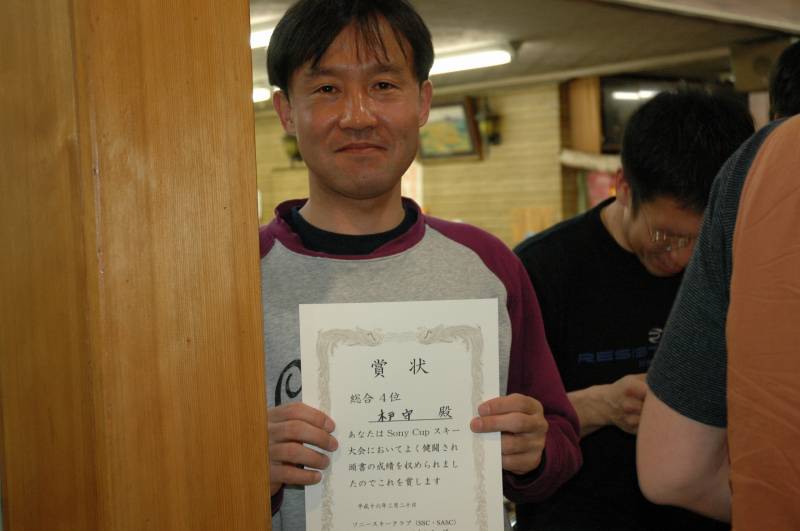 賞状
総合 4位
守 殿
あなたは Sony Cup スキー
大会においてよく健闘され
頭書の成績を収められまし
たのでこれを賞します
平成十六年三月二十日
ソニースキークラブ (SSC・SASC)